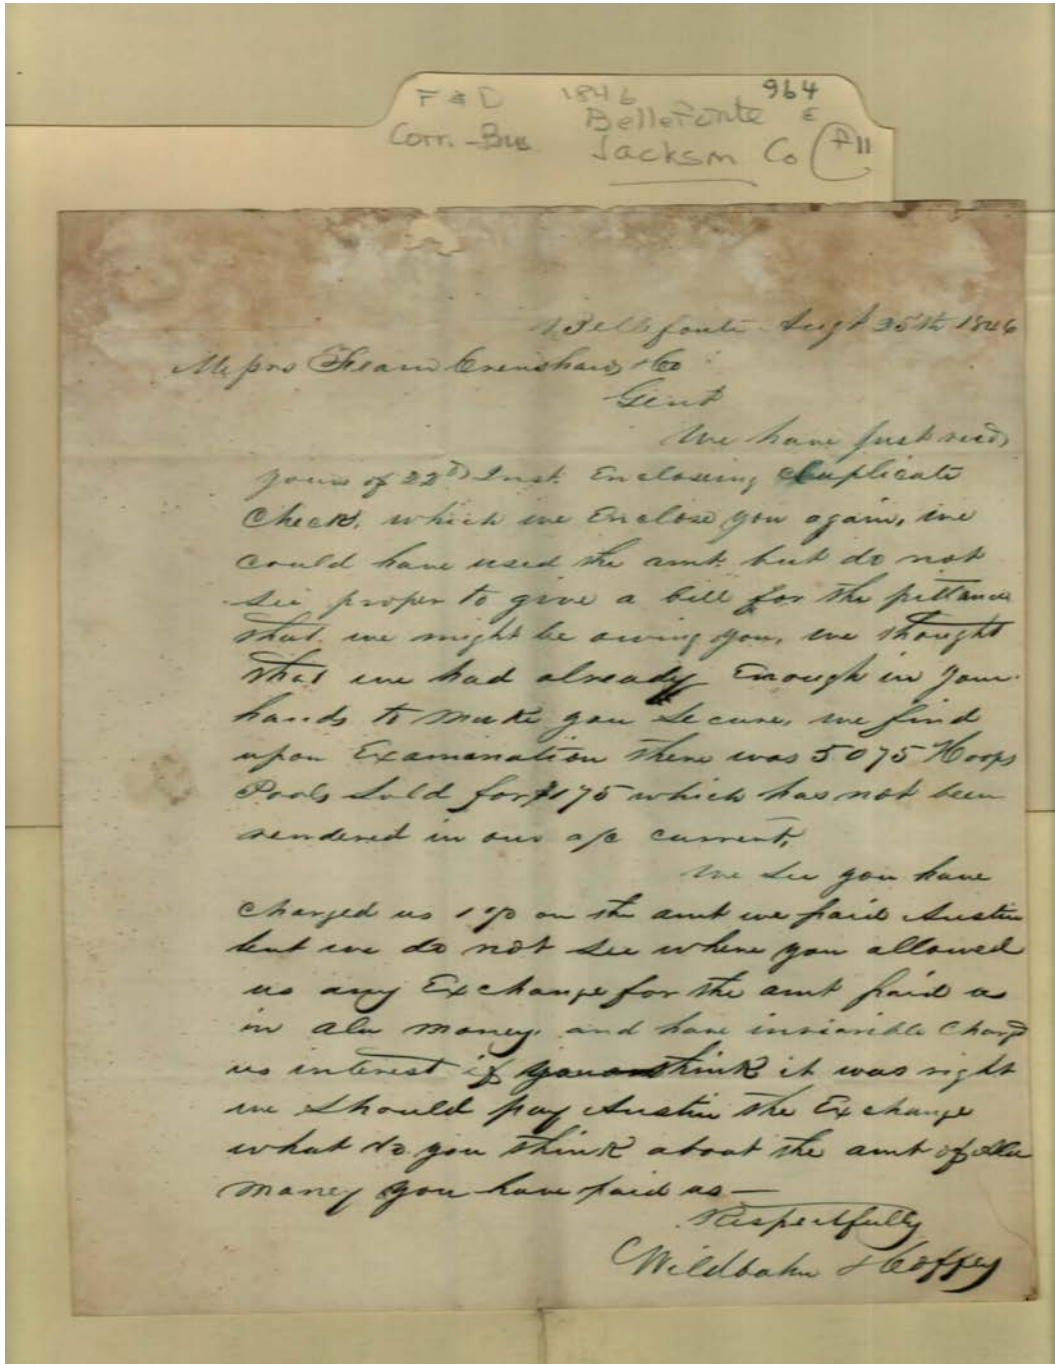 F & D 1846 964
BelleFonte E
Corr. - Bus Jackson Co F11
Bellefonte Augt 25th 1846
Messrs Fearn Crenshaw & Co
Gent
We have just recd
yours of 22d Inst. Enclosing duplicate
Check, which we Enclose you again, we
could have used the amt. but do not
see proper to give a bill for the pittance
that we might be owing you, we thought
that we had already Enough in your
hands to make you secure, we find
upon Examenation there was 5075 Hoops
Pools Sold for $175 which has not been
rendered in our a/c current,
We see you have
charged us 1 % on the amt we paid Austin
but we do not see where you allowed
us any Exchange for the amt paid us
in Ala money. and have Charg'd
us interest if you think it was right
we should pay Austin the Exchange
what do you think about the amt of Ala
money you have paid us —
Respectfully
Wildbahn & Coffey